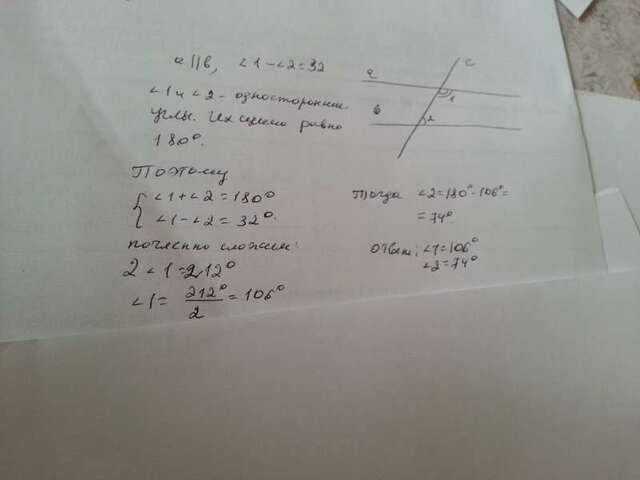 a || b, ∠1 - ∠2 = 32
∠1 и ∠2 - односторонние
углы. Их сумма равно
180°.
a
b
c
1
2
Поэтому
{ ∠1 + ∠2 = 180°
∠1 - ∠2 = 32°.
почленно сложим:
2∠1 = 212°
∠1 = 212°/2 = 106°
Тогда ∠2 = 180° - 106° =
= 74°.
Ответ: ∠1 = 106°
∠2 = 74°